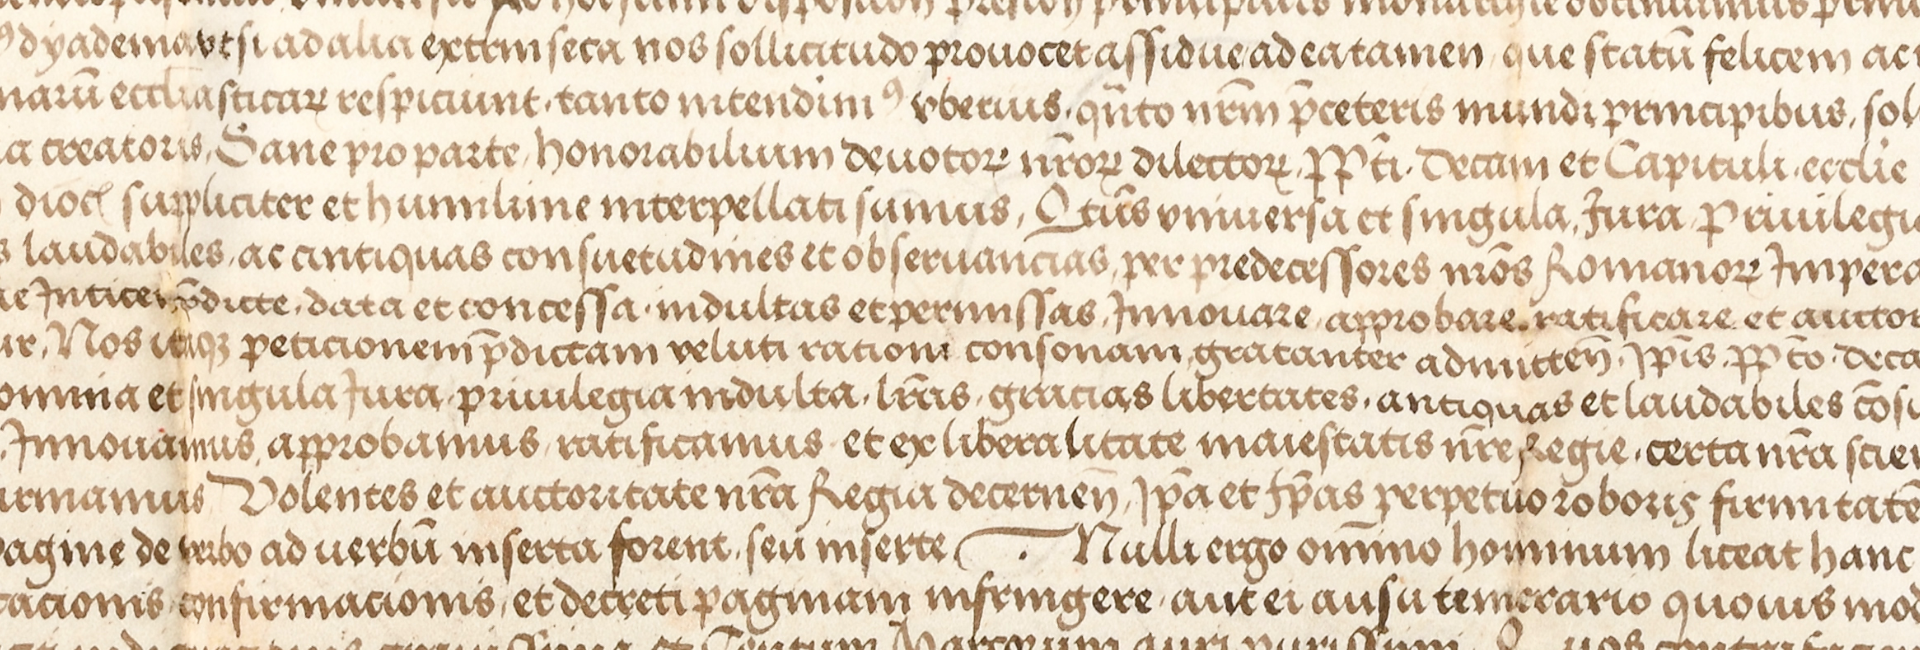 disposicion presidn principatus monarchie obtinuimus
dyadema vt si ad alia extrinseca nos sollicitudo prouocet assidue ad ea tamen que statū felicem ac
narū ecclīasticaꝝ respiciunt, tanto intendimꝰ vberius, qūto nr̄m p̄ceteris mundi principibus, sol
a creatoris, Sane pro parte honorabilium deuotoꝝ nr̄oꝝ dilectoꝝ, Pp̄ti, Decani et Capituli ecclīe
dioc̄ suppliciter et humilime interpellati sumus, Qtūs vniuersa et singula, Jura Priuilegi
s laudabiles, ac antiquas consuetudines et obseruancias, per predecessores nr̄os Romanoꝝ Impera
dicte, data et concessa, indultas et permissas, Innouare, approbare, ratificare et auctor
ur, Nos itaqꝫ peticionem p̄dictam veluti rationi consonam gratanter admitten̄, Ip̄is Pp̄to, deca
omnia et singula Jura, priuilegia indulta, lr̄as, gracias libertates, antiquas et laudabiles cōsu
, Innouamus, approbamus, ratificamus et ex liberalitate maiestatis nr̄e Regie, certa nr̄a scien
irmamus Volentes et auctoritate nr̄a Regia decernen̄, Ip̄a et Ip̄as perpetuo roboris firmitatē
pagine de verbo ad uerbū inserta forent, seu inserte Nulli ergo omīno hominum liceat hanc
cacionis confirmacionis, et decreti paginam infringere, aut ei ausu temerario quouis mod
Centum Marcarum auri purissimi